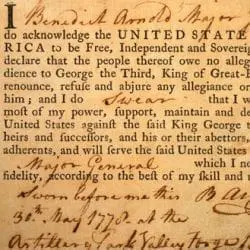 I Benedict Arnold Major
do acknowledge the UNITED STATE
RICA to be Free, Independent and Sovereig
declare that the people thereof owe no alleg
dience to George the Third, King of Great-
renounce, refuse and abjure any allegiance or
him; and I do Swear that I w
most of my power, support, maintain and de
United States against the said King George t
heirs and succeſſors, and his or their abettors,
adherents, and will ſerve the ſaid United States
Major General which I no
fidelity, according to the beſt of my ſkill and
Sworn before me this B A
30th May 1778. at the
Artillery Park Valley forge